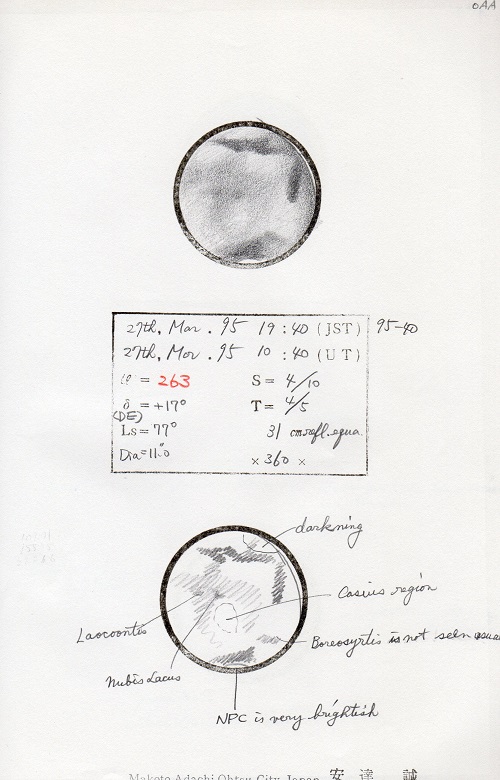 OAA
27th, Mar. 95 19:40 (JST) 95-40
27th, Mar. 95 10:40 (UT)
= 263 S = 4/10
δ = +17° T = 4/5
(DE)
Ls = 77° 31 cm refl. equa.
Dia = 11".0 × 360 ×
darkning
Casius region
Laocoontis
Boreosyrtis is not seen usua
Nubis Lacus
NPC is very brightish
Makoto Adachi Ohtsu City, Japan 安達 誠